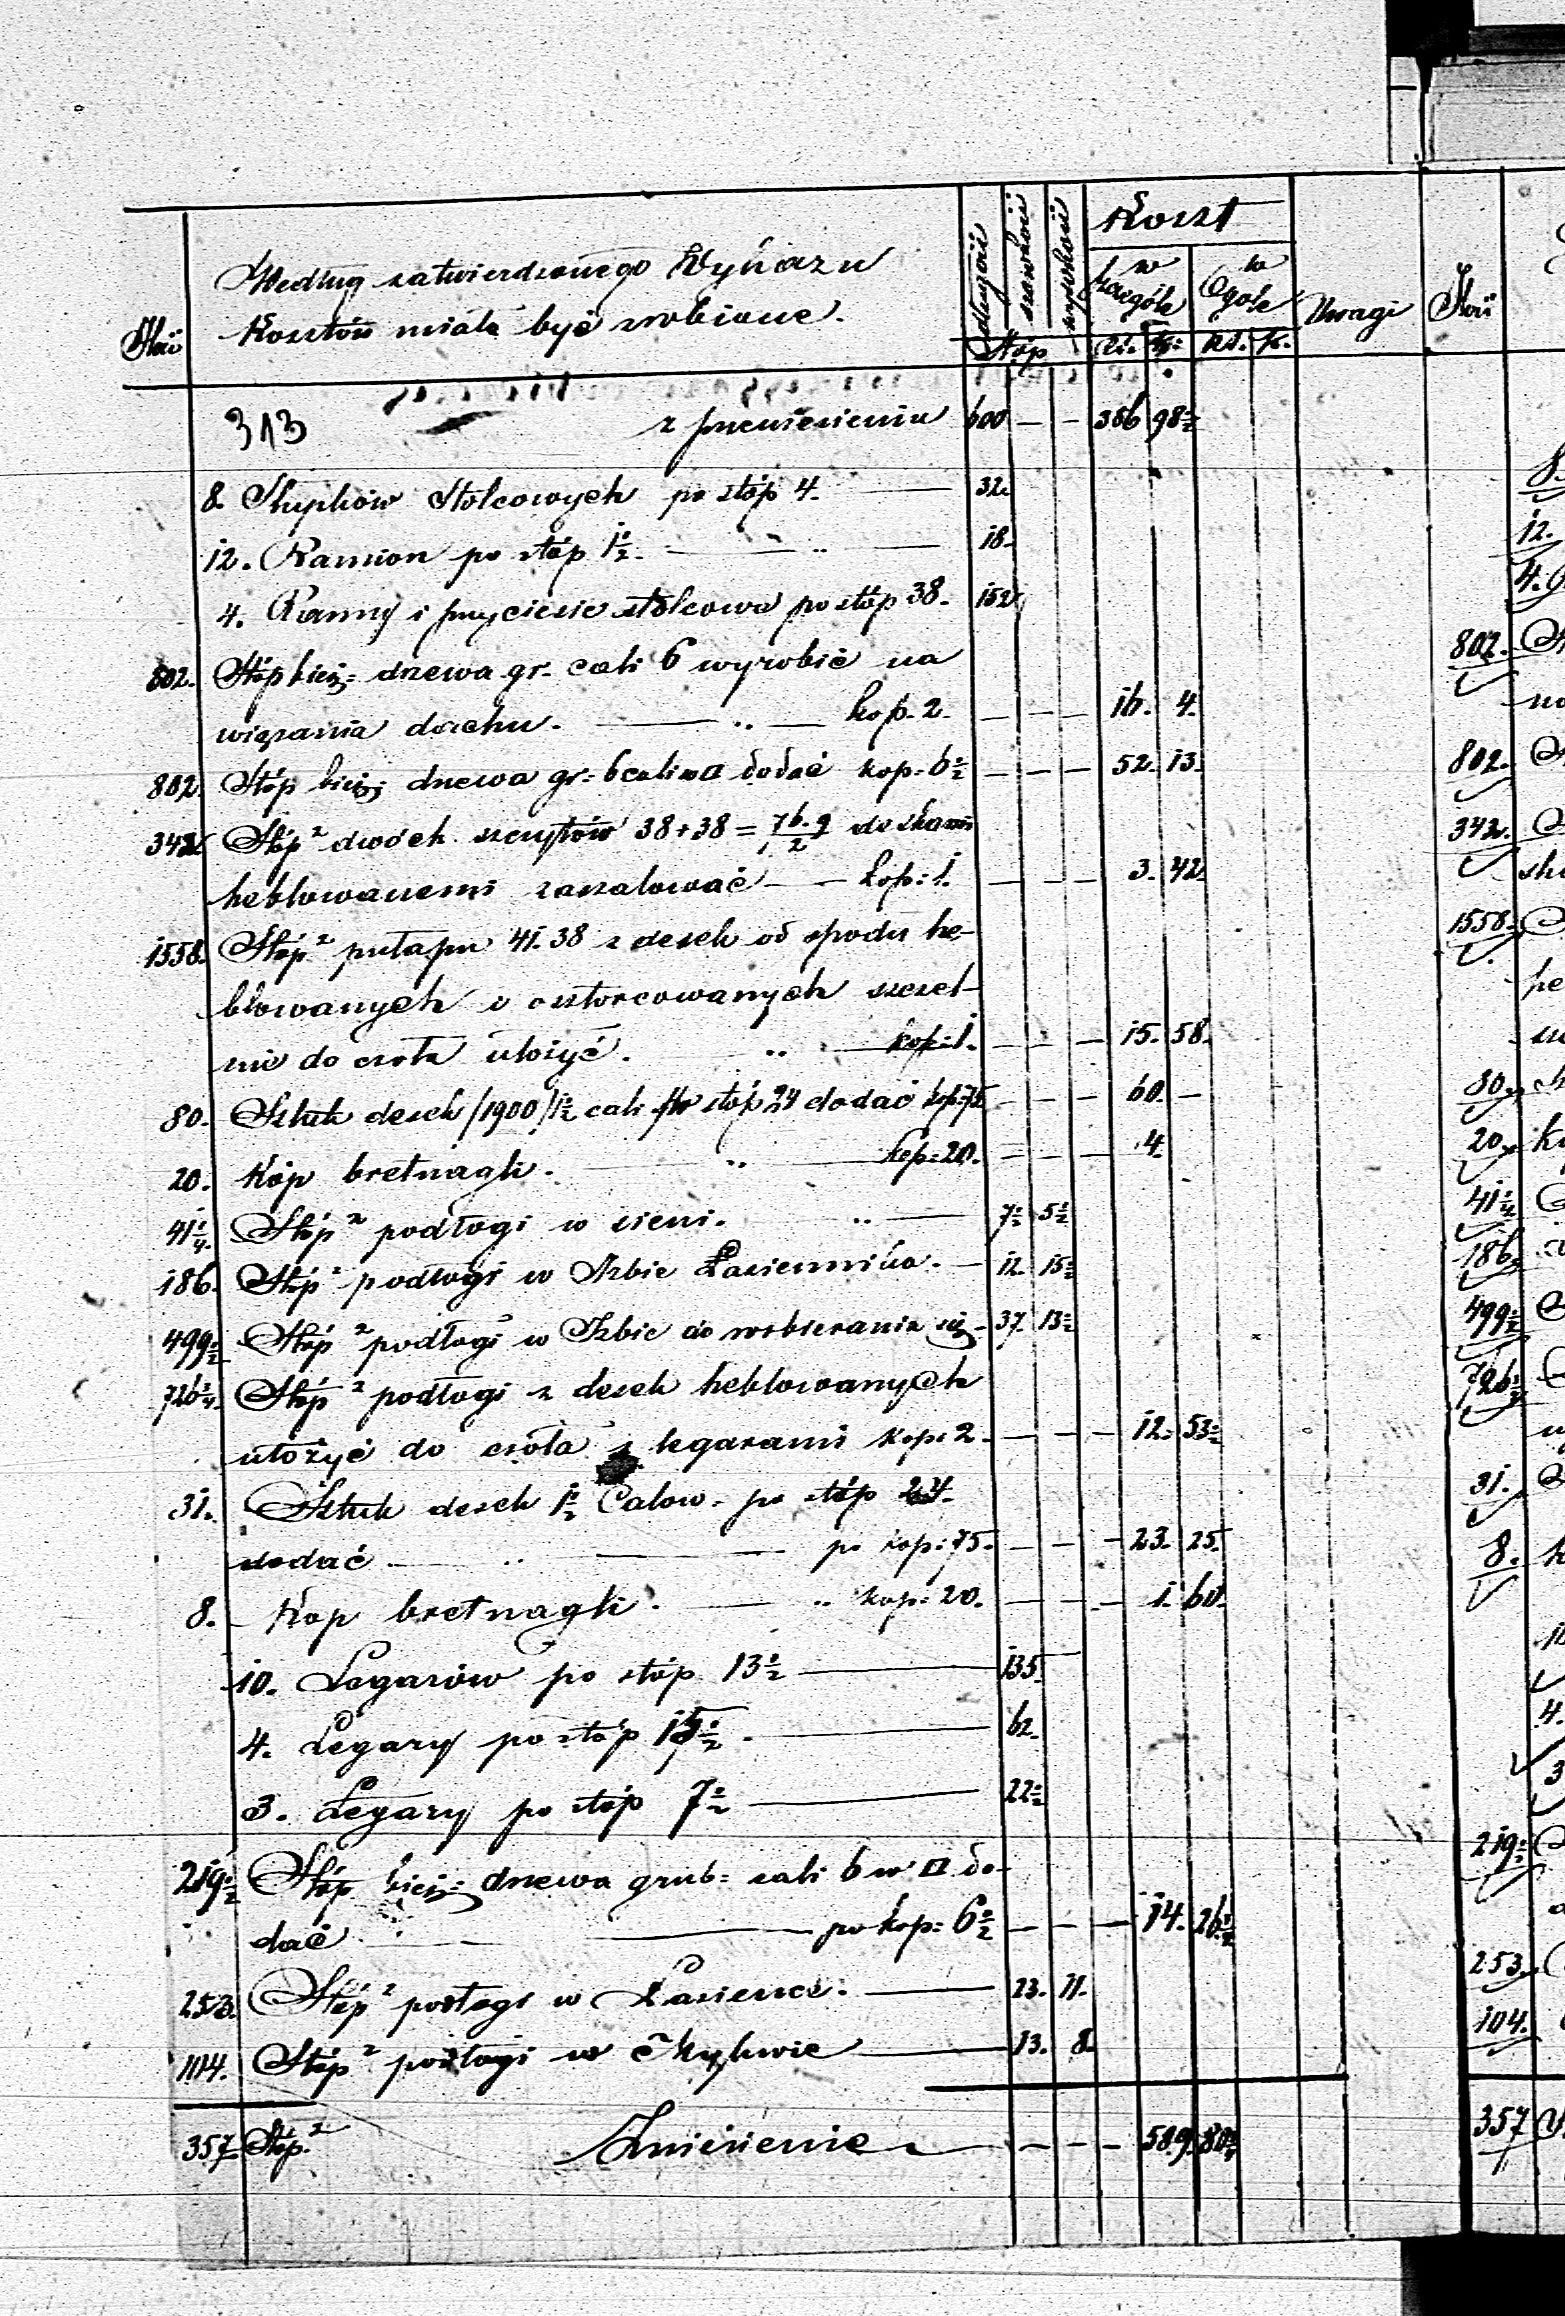 Ilość
Według zatwierdzonego Wykazu
Kosztów miało być zrobione.
długość szerokość wysokość
Stóp
Koszt
w szczególe w Ogóle
Rs. k. Rs. k.
Uwagi Ilość
313 z przeniesienia 600 — — 386 98½
8. Słupków Stolcowych po stóp 4. — 32.
12. Ramion po stóp 1½. — „ — 18.
4. Ramy i przyciesie stolcowe po stóp 38. 152
802. Stóp bież: drzewa gr. cali 6 wyrobić na
wiązania dachu. — „ — kop. 2. — — — 16. 4.
802. Stóp bież: drzewa gr: 6 cali w □ dodać kop: 6½ — — — 52. 13.
342. Stóp² dwóch szczytów 38+38 = 76.9/2 deskami
heblowanemi zaszalować — kop: 1. — — — 3. 42.
1558. Stóp² pułapu 41. 38 z desek od spodu he-
blowanych i osztorcowanych szczel-
nie do czoła ułożyć. „ — kop: 1. — — — 15. 58.
80. Sztuk desek /1900/ 1½ cali stóp 24 dodać kop. 75 — — — 60. —
20. Kóp bretnagli. — „ — kop: 20. — — — 4.
41¼. Stóp² podłogi w sieni. „ — 7½ 5½
186. Stóp² podłogi w Izbie Łaziennika. — 12. 15½
499½ Stóp² podłogi w Izbie do rozbierania się — 37. 13½
726¾. Stóp² podłogi z desek heblowanych
ułożyć do czoła z legarami kop: 2. — — — 12. 53½
31. Sztuk desek 1½ Calow. po stóp 24.
dodać — „ — po kop: 75. — — — 23. 25.
8. Kop bretnagli. — „ kop: 20. — — — 1. 60.
10. Legarów po stóp 13½ — 135
4. Legary po stóp 15½. — 62.
3. Legary po stóp 7½ — 22½
219½ Stóp bież: drzewa grub: cali 6 w □ do-
dać. — po kop: 6½ — — — 14. 26½
253. Stóp² podłogi w Łazience. — 23. 11.
104. Stóp² podłogi w Mykwie — 13. 8.
357. Stóp.² Zniesienie — — — — 589. 80¾
8.
12.
4.
802.
802.
342.
1558.
80.
20.
41¼
186.
499½
726¾
31.
8.
4.
3
219½
253.
104.
357